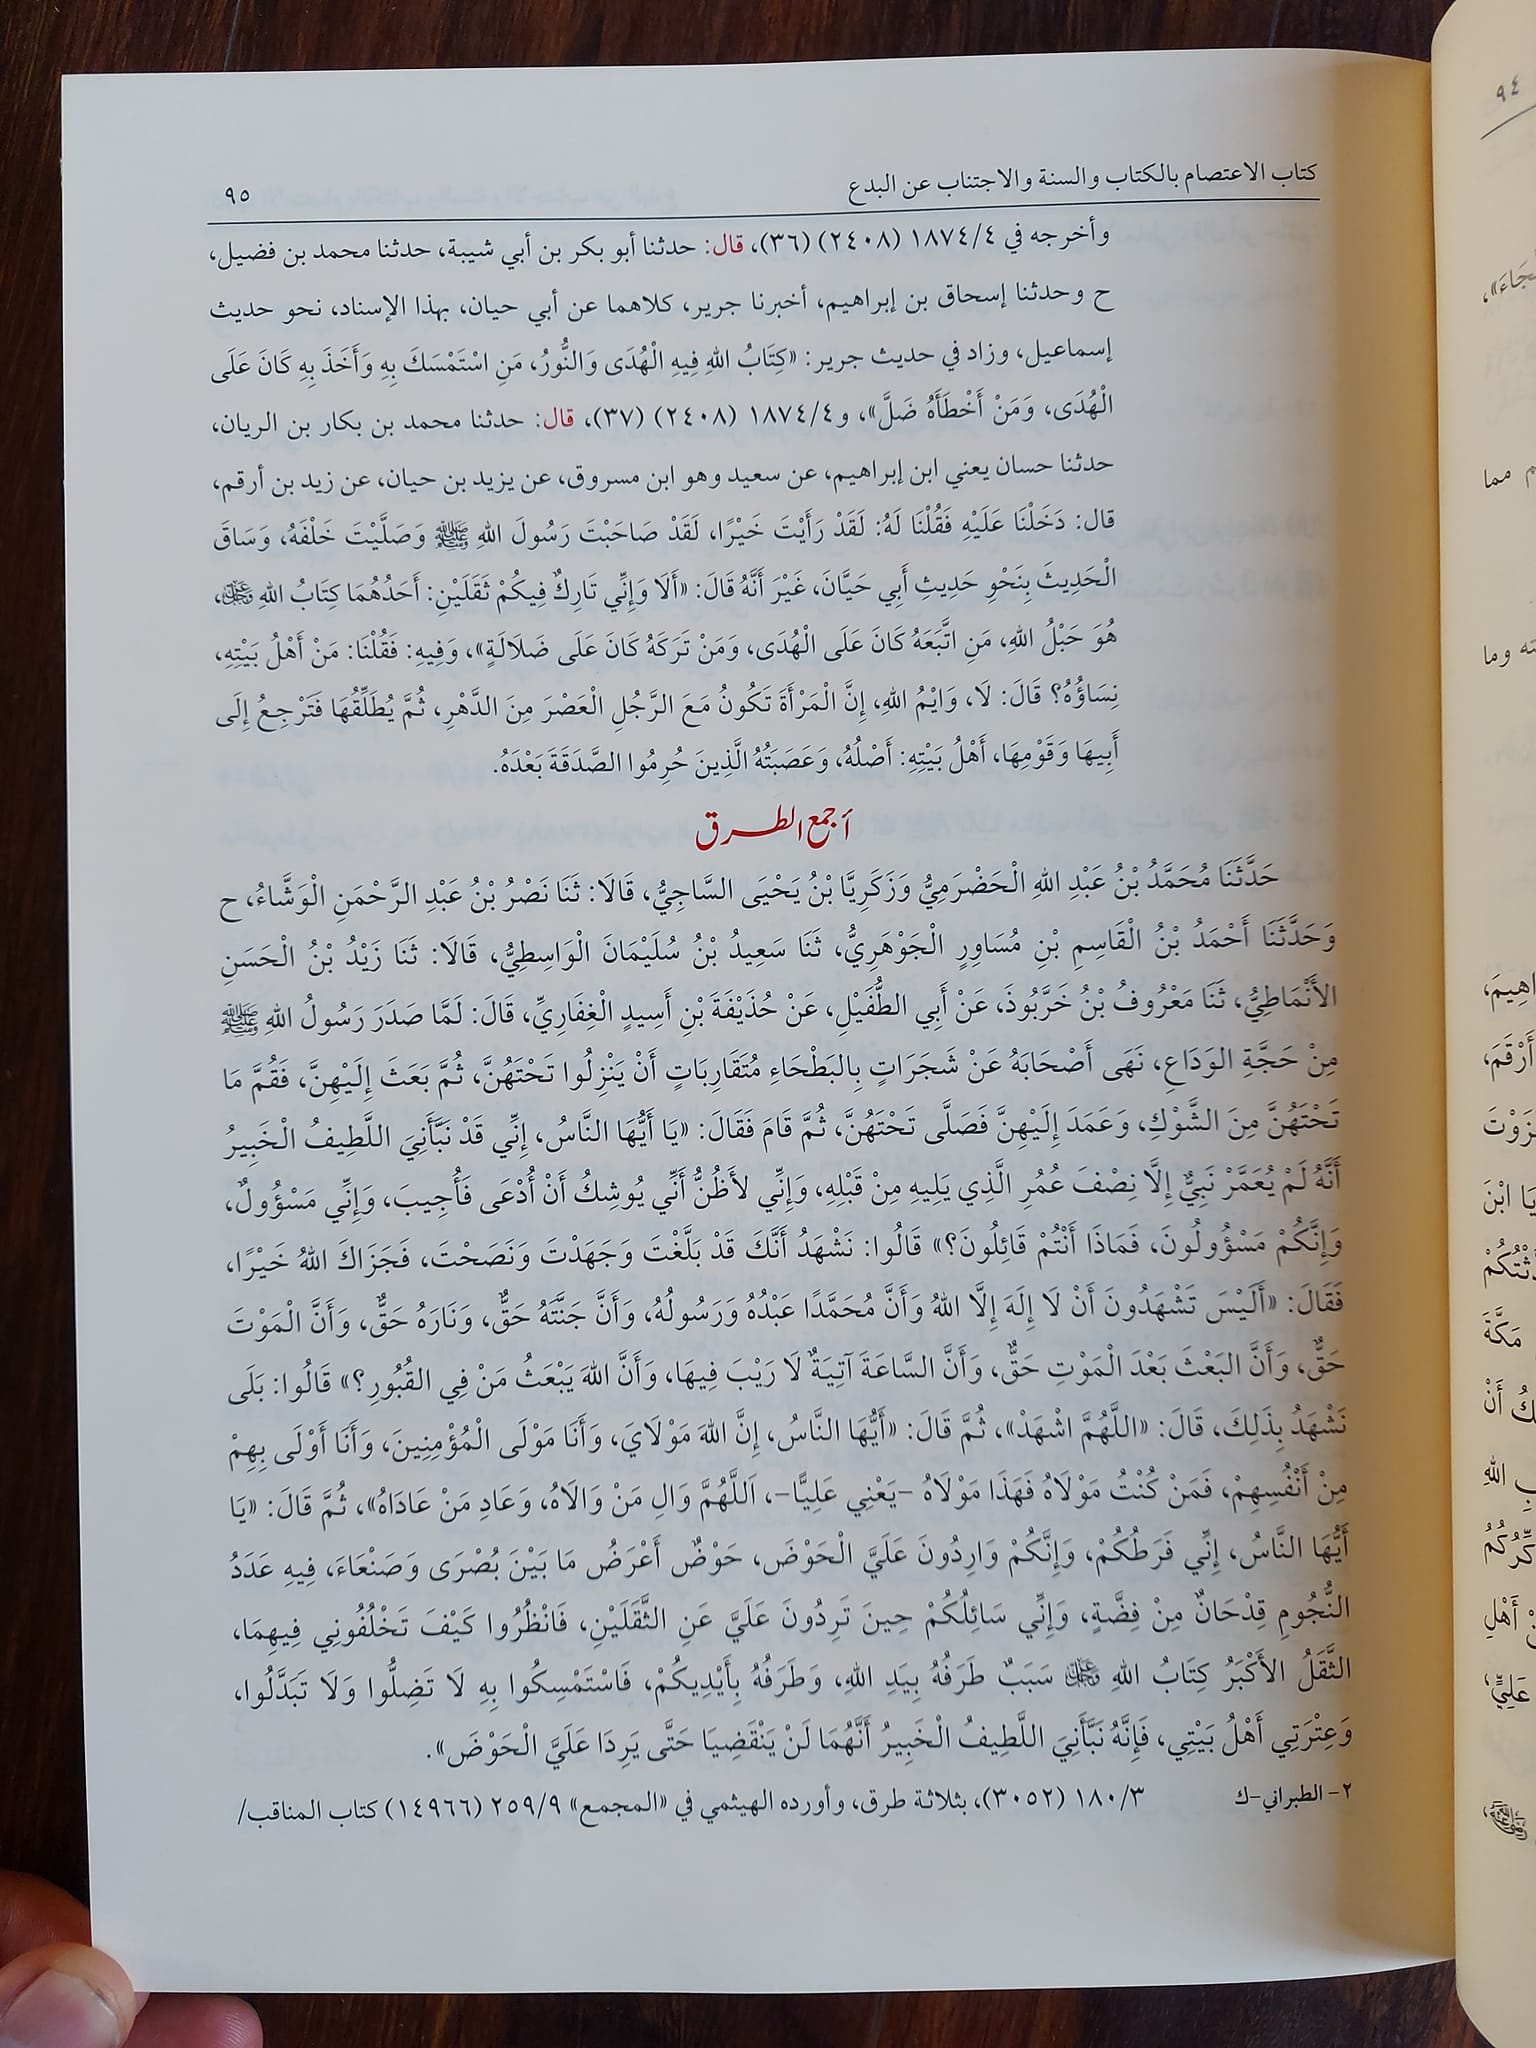 كتاب الاعتصام بالكتاب والسنة والاجتناب عن البدع ٩٥
وأخرجه في ١٨٧٤/٤ (٢٤٠٨) (٣٦)، قال: حدثنا أبو بكر بن أبي شيبة، حدثنا محمد بن فضيل،
ح وحدثنا إسحاق بن إبراهيم، أخبرنا جرير، كلاهما عن أبي حيان، بهذا الإسناد، نحو حديث
إسماعيل، وزاد في حديث جرير: «كِتَابُ اللهِ فِيهِ الْهُدَى وَالنُّورُ، مَنِ اسْتَمْسَكَ بِهِ وَأَخَذَ بِهِ كَانَ عَلَى
الْهُدَى، وَمَنْ أَخْطَأَهُ ضَلَّ»، و١٨٧٤/٤ (٢٤٠٨) (٣٧)، قال: حدثنا محمد بن بكار بن الريان،
حدثنا حسان يعني ابن إبراهيم، عن سعيد وهو ابن مسروق، عن يزيد بن حيان، عن زيد بن أرقم،
قال: دَخَلْنَا عَلَيْهِ فَقُلْنَا لَهُ: لَقَدْ رَأَيْتَ خَيْرًا، لَقَدْ صَاحَبْتَ رَسُولَ اللهِ ﷺ وَصَلَّيْتَ خَلْفَهُ، وَسَاقَ
الْحَدِيثَ بِنَحْوِ حَدِيثِ أَبِي حَيَّانَ، غَيْرَ أَنَّهُ قَالَ: «أَلَا وَإِنِّي تَارِكٌ فِيكُمْ ثَقَلَيْنِ: أَحَدُهُمَا كِتَابُ اللهِ ﷻ،
هُوَ حَبْلُ اللهِ، مَنِ اتَّبَعَهُ كَانَ عَلَى الْهُدَى، وَمَنْ تَرَكَهُ كَانَ عَلَى ضَلَالَةٍ»، وَفِيهِ: فَقُلْنَا: مَنْ أَهْلُ بَيْتِهِ،
نِسَاؤُهُ؟ قَالَ: لَا، وَايْمُ اللهِ، إِنَّ الْمَرْأَةَ تَكُونُ مَعَ الرَّجُلِ الْعَصْرَ مِنَ الدَّهْرِ، ثُمَّ يُطَلِّقُهَا فَتَرْجِعُ إِلَى
أَبِيهَا وَقَوْمِهَا، أَهْلُ بَيْتِهِ: أَصْلُهُ، وَعَصَبَتُهُ الَّذِينَ حُرِمُوا الصَّدَقَةَ بَعْدَهُ.
أجمع الطرق
حَدَّثَنَا مُحَمَّدُ بْنُ عَبْدِ اللهِ الْحَضْرَمِيُّ وَزَكَرِيَّا بْنُ يَحْيَى السَّاجِيُّ، قَالَا: ثَنَا نَصْرُ بْنُ عَبْدِ الرَّحْمَنِ الْوَشَّاءُ، ح
وَحَدَّثَنَا أَحْمَدُ بْنُ الْقَاسِمِ بْنِ مُسَاوِرٍ الْجَوْهَرِيُّ، ثَنَا سَعِيدُ بْنُ سُلَيْمَانَ الْوَاسِطِيُّ، قَالَا: ثَنَا زَيْدُ بْنُ الْحَسَنِ
الأَنْمَاطِيُّ، ثَنَا مَعْرُوفُ بْنُ خَرَّبُوذَ، عَنْ أَبِي الطُّفَيْلِ، عَنْ حُذَيْفَةَ بْنِ أَسِيدٍ الْغِفَارِيِّ، قَالَ: لَمَّا صَدَرَ رَسُولُ اللهِ ﷺ
مِنْ حَجَّةِ الوَدَاعِ، نَهَى أَصْحَابَهُ عَنْ شَجَرَاتٍ بِالبَطْحَاءِ مُتَقَارِبَاتٍ أَنْ يَنْزِلُوا تَحْتَهُنَّ، ثُمَّ بَعَثَ إِلَيْهِنَّ، فَقُمَّ مَا
تَحْتَهُنَّ مِنَ الشَّوْكِ، وَعَمَدَ إِلَيْهِنَّ فَصَلَّى تَحْتَهُنَّ، ثُمَّ قَامَ فَقَالَ: «يَا أَيُّهَا النَّاسُ، إِنِّي قَدْ نَبَّأَنِيَ اللَّطِيفُ الْخَبِيرُ
أَنَّهُ لَمْ يُعَمَّرْ نَبِيٌّ إِلَّا نِصْفَ عُمُرِ الَّذِي يَلِيهِ مِنْ قَبْلِهِ، وَإِنِّي لأَظُنُّ أَنِّي يُوشِكُ أَنْ أُدْعَى فَأُجِيبَ، وَإِنِّي مَسْؤُولٌ،
وَإِنَّكُمْ مَسْؤُولُونَ، فَمَاذَا أَنْتُمْ قَائِلُونَ؟» قَالُوا: نَشْهَدُ أَنَّكَ قَدْ بَلَّغْتَ وَجَهَدْتَ وَنَصَحْتَ، فَجَزَاكَ اللهُ خَيْرًا،
فَقَالَ: «أَلَيْسَ تَشْهَدُونَ أَنْ لَا إِلَهَ إِلَّا اللهُ وَأَنَّ مُحَمَّدًا عَبْدُهُ وَرَسُولُهُ، وَأَنَّ جَنَّتَهُ حَقٌّ، وَنَارَهُ حَقٌّ، وَأَنَّ الْمَوْتَ
حَقٌّ، وَأَنَّ البَعْثَ بَعْدَ الْمَوْتِ حَقٌّ، وَأَنَّ السَّاعَةَ آتِيَةٌ لَا رَيْبَ فِيهَا، وَأَنَّ اللهَ يَبْعَثُ مَنْ فِي القُبُورِ؟» قَالُوا: بَلَى
نَشْهَدُ بِذَلِكَ، قَالَ: «اللَّهُمَّ اشْهَدْ»، ثُمَّ قَالَ: «أَيُّهَا النَّاسُ، إِنَّ اللهَ مَوْلَايَ، وَأَنَا مَوْلَى الْمُؤْمِنِينَ، وَأَنَا أَوْلَى بِهِمْ
مِنْ أَنْفُسِهِمْ، فَمَنْ كُنْتُ مَوْلَاهُ فَهَذَا مَوْلَاهُ –يَعْنِي عَلِيًّا–، اَللَّهُمَّ وَالِ مَنْ وَالَاهُ، وَعَادِ مَنْ عَادَاهُ»، ثُمَّ قَالَ: «يَا
أَيُّهَا النَّاسُ، إِنِّي فَرَطُكُمْ، وَإِنَّكُمْ وَارِدُونَ عَلَيَّ الْحَوْضَ، حَوْضٌ أَعْرَضُ مَا بَيْنَ بُصْرَى وَصَنْعَاءَ، فِيهِ عَدَدُ
النُّجُومِ قِدْحَانٌ مِنْ فِضَّةٍ، وَإِنِّي سَائِلُكُمْ حِينَ تَرِدُونَ عَلَيَّ عَنِ الثَّقَلَيْنِ، فَانْظُرُوا كَيْفَ تَخْلُفُونِي فِيهِمَا،
الثَّقَلُ الأَكْبَرُ كِتَابُ اللهِ ﷻ سَبَبٌ طَرَفُهُ بِيَدِ اللهِ، وَطَرَفُهُ بِأَيْدِيكُمْ، فَاسْتَمْسِكُوا بِهِ لَا تَضِلُّوا وَلَا تَبَدَّلُوا،
وَعِتْرَتِي أَهْلُ بَيْتِي، فَإِنَّهُ نَبَّأَنِيَ اللَّطِيفُ الْخَبِيرُ أَنَّهُمَا لَنْ يَنْقَضِيَا حَتَّى يَرِدَا عَلَيَّ الْحَوْضَ».
٢- الطبراني-ك ١٨٠/٣ (٣٠٥٢)، بثلاثة طرق، وأورده الهيثمي في «المجمع» ٢٥٩/٩ (١٤٩٦٦) كتاب المناقب/
٩٤
مما
وما
أَرْقَمَ،
يَا ابْنَ
مَكَّةَ
أَنْ
اللهِ
أَهْلِ
عَلِيٍّ،